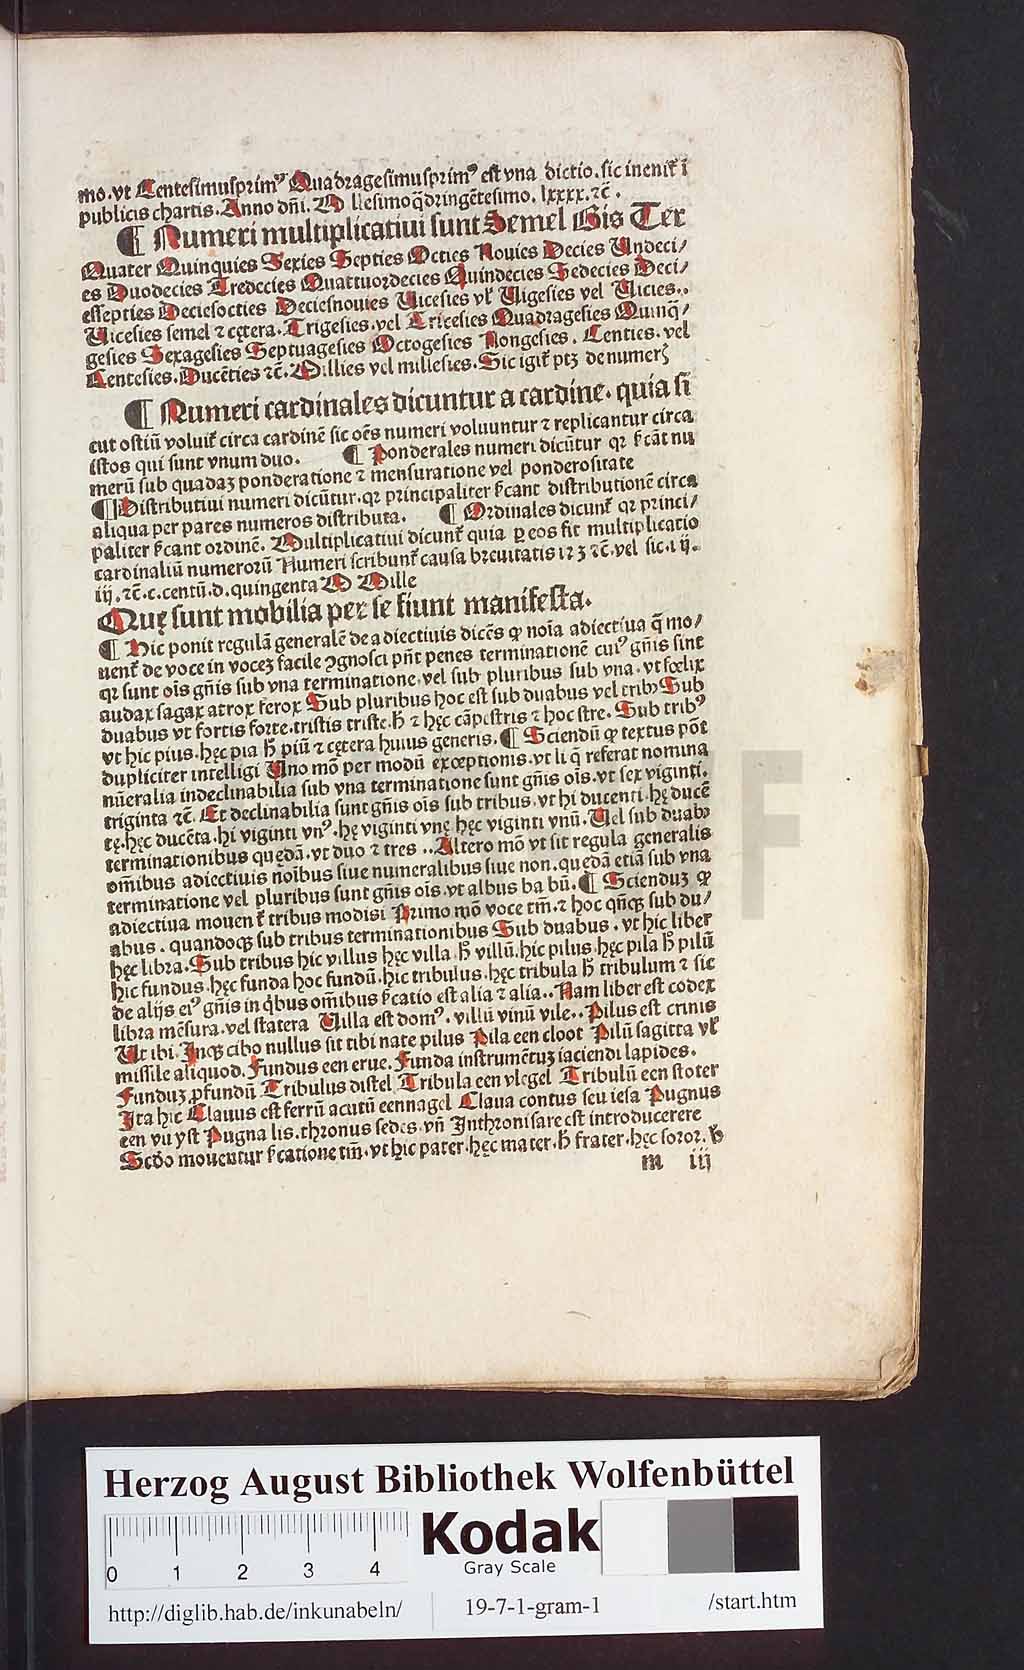 mo.vt Centesimusprimꝰ Quadragesimusprimꝰ est vna dictio.sic inenit᷑ ī
publicis chartis.Anno dñi. M llesimoq̃dringētesimo. lxxxx.⁊c̄.
¶ Numeri multiplicatiui sunt Semel Bis Ter
Quater Quinquies Sexies Septies Octies Nouies Decies Undeci/
es Duodecies Tredecies Quattuordecies Quindecies Sedecies Deci/
essepties Deciesocties Deciesnouies Uicesies vł Uigesies vel Uicies..
Uicesies semel ⁊ cętera.Trigesies.vel Tricesies Quadragesies Quinq̃/
gesies Sexagesies Septuagesies Octogesies Nongesies. Centies. vel
Centesies.Ducēties ⁊c̄.Millies vel millesies.Sic igit᷑ ptꝫ de numerꝭ
¶ Numeri cardinales dicuntur a cardine. quia si
cut ostiū voluit᷑ circa cardinē sic oēs numeri voluuntur ⁊ replicantur circa
istos qui sunt vnum duo. ¶ Ponderales numeri dicūtur qꝛ s̄cāt nu
merū sub quadaꝫ ponderatione ⁊ mensuratione vel ponderositate
¶ Distributiui numeri dicūtur.qꝛ principaliter s̄cant distributionē circa
aliqua per pares numeros distributa. ¶ Ordinales dicunt᷑ qꝛ princi/
paliter s̄cant ordinē. Multiplicatiui dicunt᷑ quia ꝑ eos fit multiplicatio
cardinaliū numerorū Numeri scribunt᷑ causa breuitatis 1 2 3 ⁊c̄.vel sic.i ij.
iij.⁊c̄.c.centū.d.quingenta M Mille
Quę sunt mobilia per se fiunt manifesta.
¶ Hic ponit regulā generalē de adiectiuis dicēs ꝙ noīa adiectiua q̄ mo/
uent᷑ de voce in voceꝫ facile ꝯgnosci pn̄t penes terminationē cuiꝰ gn̄is sint
qꝛ sunt oīs gn̄is sub vna terminatione.vel sub pluribus sub vna.vt fœlix
audax sagax atrox ferox Sub pluribus hoc est sub duabus vel tribꝫ Sub
duabus vt fortis forte.tristis triste.h̄ ⁊ hęc cāpestris ⁊ hoc stre. Sub tribꝰ
vt hic pius.hęc pia h̄ piū ⁊ cętera huius generis.¶ Sciendū ꝙ textus pōt
dupliciter intelligi Uno mō per modū exceptionis.vt li q̄ referat nomina
nūeralia indeclinabilia sub vna terminatione sunt gn̄is oīs.vt sex viginti.
triginta ⁊c̄. Et declinabilia sunt gn̄is oīs sub tribus.vt hi ducenti.hę ducē
tę.hęc ducēta.hi viginti vnꝰ.hę viginti vnę hęc viginti vnū.Uel sub duabꝫ
terminationibus quędā.vt duo ⁊ tres ..Altero mō vt sit regula generalis
om̄ibus adiectiuis noībus siue numeralibus siue non.quedā etiā sub vna
terminatione vel pluribus sunt gn̄is oīs.vt albus ba bū.¶ Sciendū ꝙ
adiectiua mouent᷑ tribus modisi Primo mō voce tm̄.⁊ hoc qn̄qꝫ sub du/
abus . quandoqꝫ sub tribus terminationibus Sub duabus . vt hic liber
hęc libra.Sub tribus hic villus hęc villa h̄ villū.hic pilus hęc pila h̄ pilū
hic fundus.hęc funda hoc fundū.hic tribulus.hęc tribula h̄ tribulum ⁊ sic
de alijs eiꝰ gn̄is in qͥbus om̄ibus s̄catio est alia ⁊ alia..Nam liber est codex
libra mēsura.vel statera Uilla est domꝰ.villū vinū vile..Pilus est crinis
Ut ibi.Jnqꝫ cibo nullus sit tibi nate pilus Pila een cloot Pilū sagitta vł
missile aliquod.Fundus een erue.Funda instrumētuꝫ iaciendi lapides.
Funduꝫ ꝓfundū Tribulus distel Tribula een vlegel Tribulū een stoter
Jta hic Clauus est ferrū acutū eennagel Claua contus seu iesa Pugnus
een vuyst Pugna lis.thronus sedes.vn̄ Jnthronisare est introducerere
Scd̄o mouentur s̄catione tm̄.vt hic pater.hęc mater.h̄ frater.hęc soror.h̄
m iij
Herzog August Bibliothek Wolfenbüttel
0 1 2 3 4
Kodak
Gray Scale
http://diglib.hab.de/inkunabeln/ 19-7-1-gram-1 /start.htm